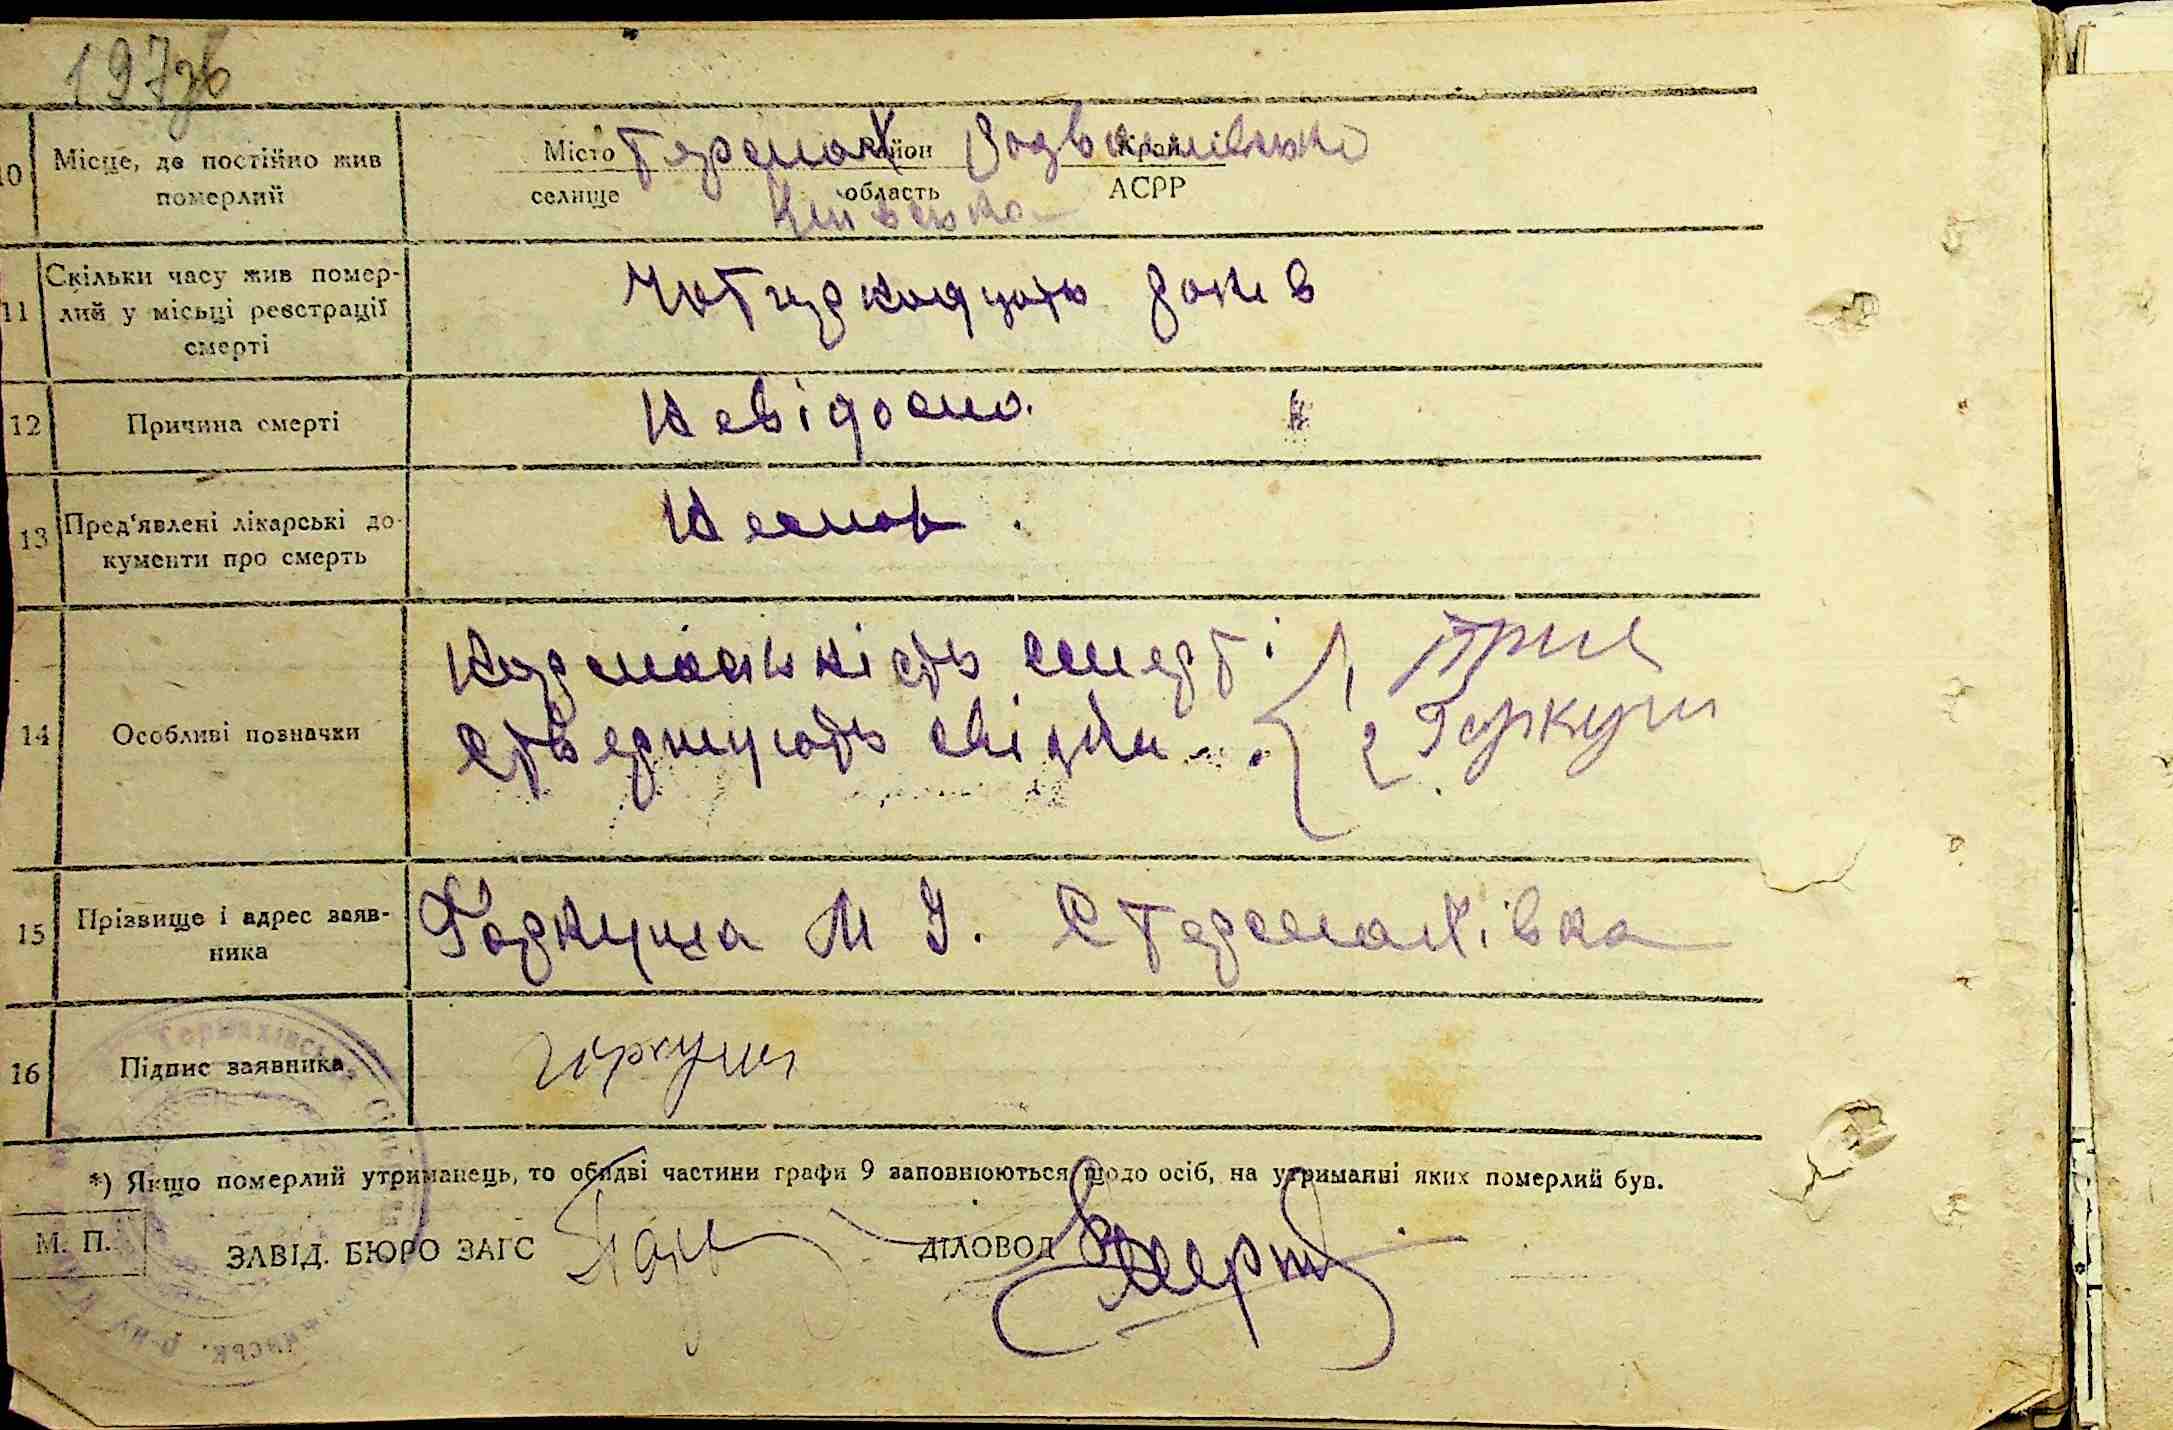 197зв
10 Місце, де постійно жив
померлий
Місто Термах район Родвинівська Край
селище область АСРР
Київська
11 Скільки часу жив помер-
лий у місьці реєстрації
смерті
Чотиркадцять років
12 Причина смерті
Невідомо.
13 Пред'явлені лікарські до-
кументи про смерть
Немає.
14 Особливі позначки
смерті
стверджують свідки
1
2 Горкуша
15 Прізвище і адрес заяв-
ника
Горкуша М І. С Термахівка
16 Підпис заявника
Горкуша
*) Якщо померлий утриманець, то обидві частини графи 9 заповнюються щодо осіб, на утриманні яких померлий був.
М. П.
ЗАВІД. БЮРО ЗАГС
ДІЛОВОД